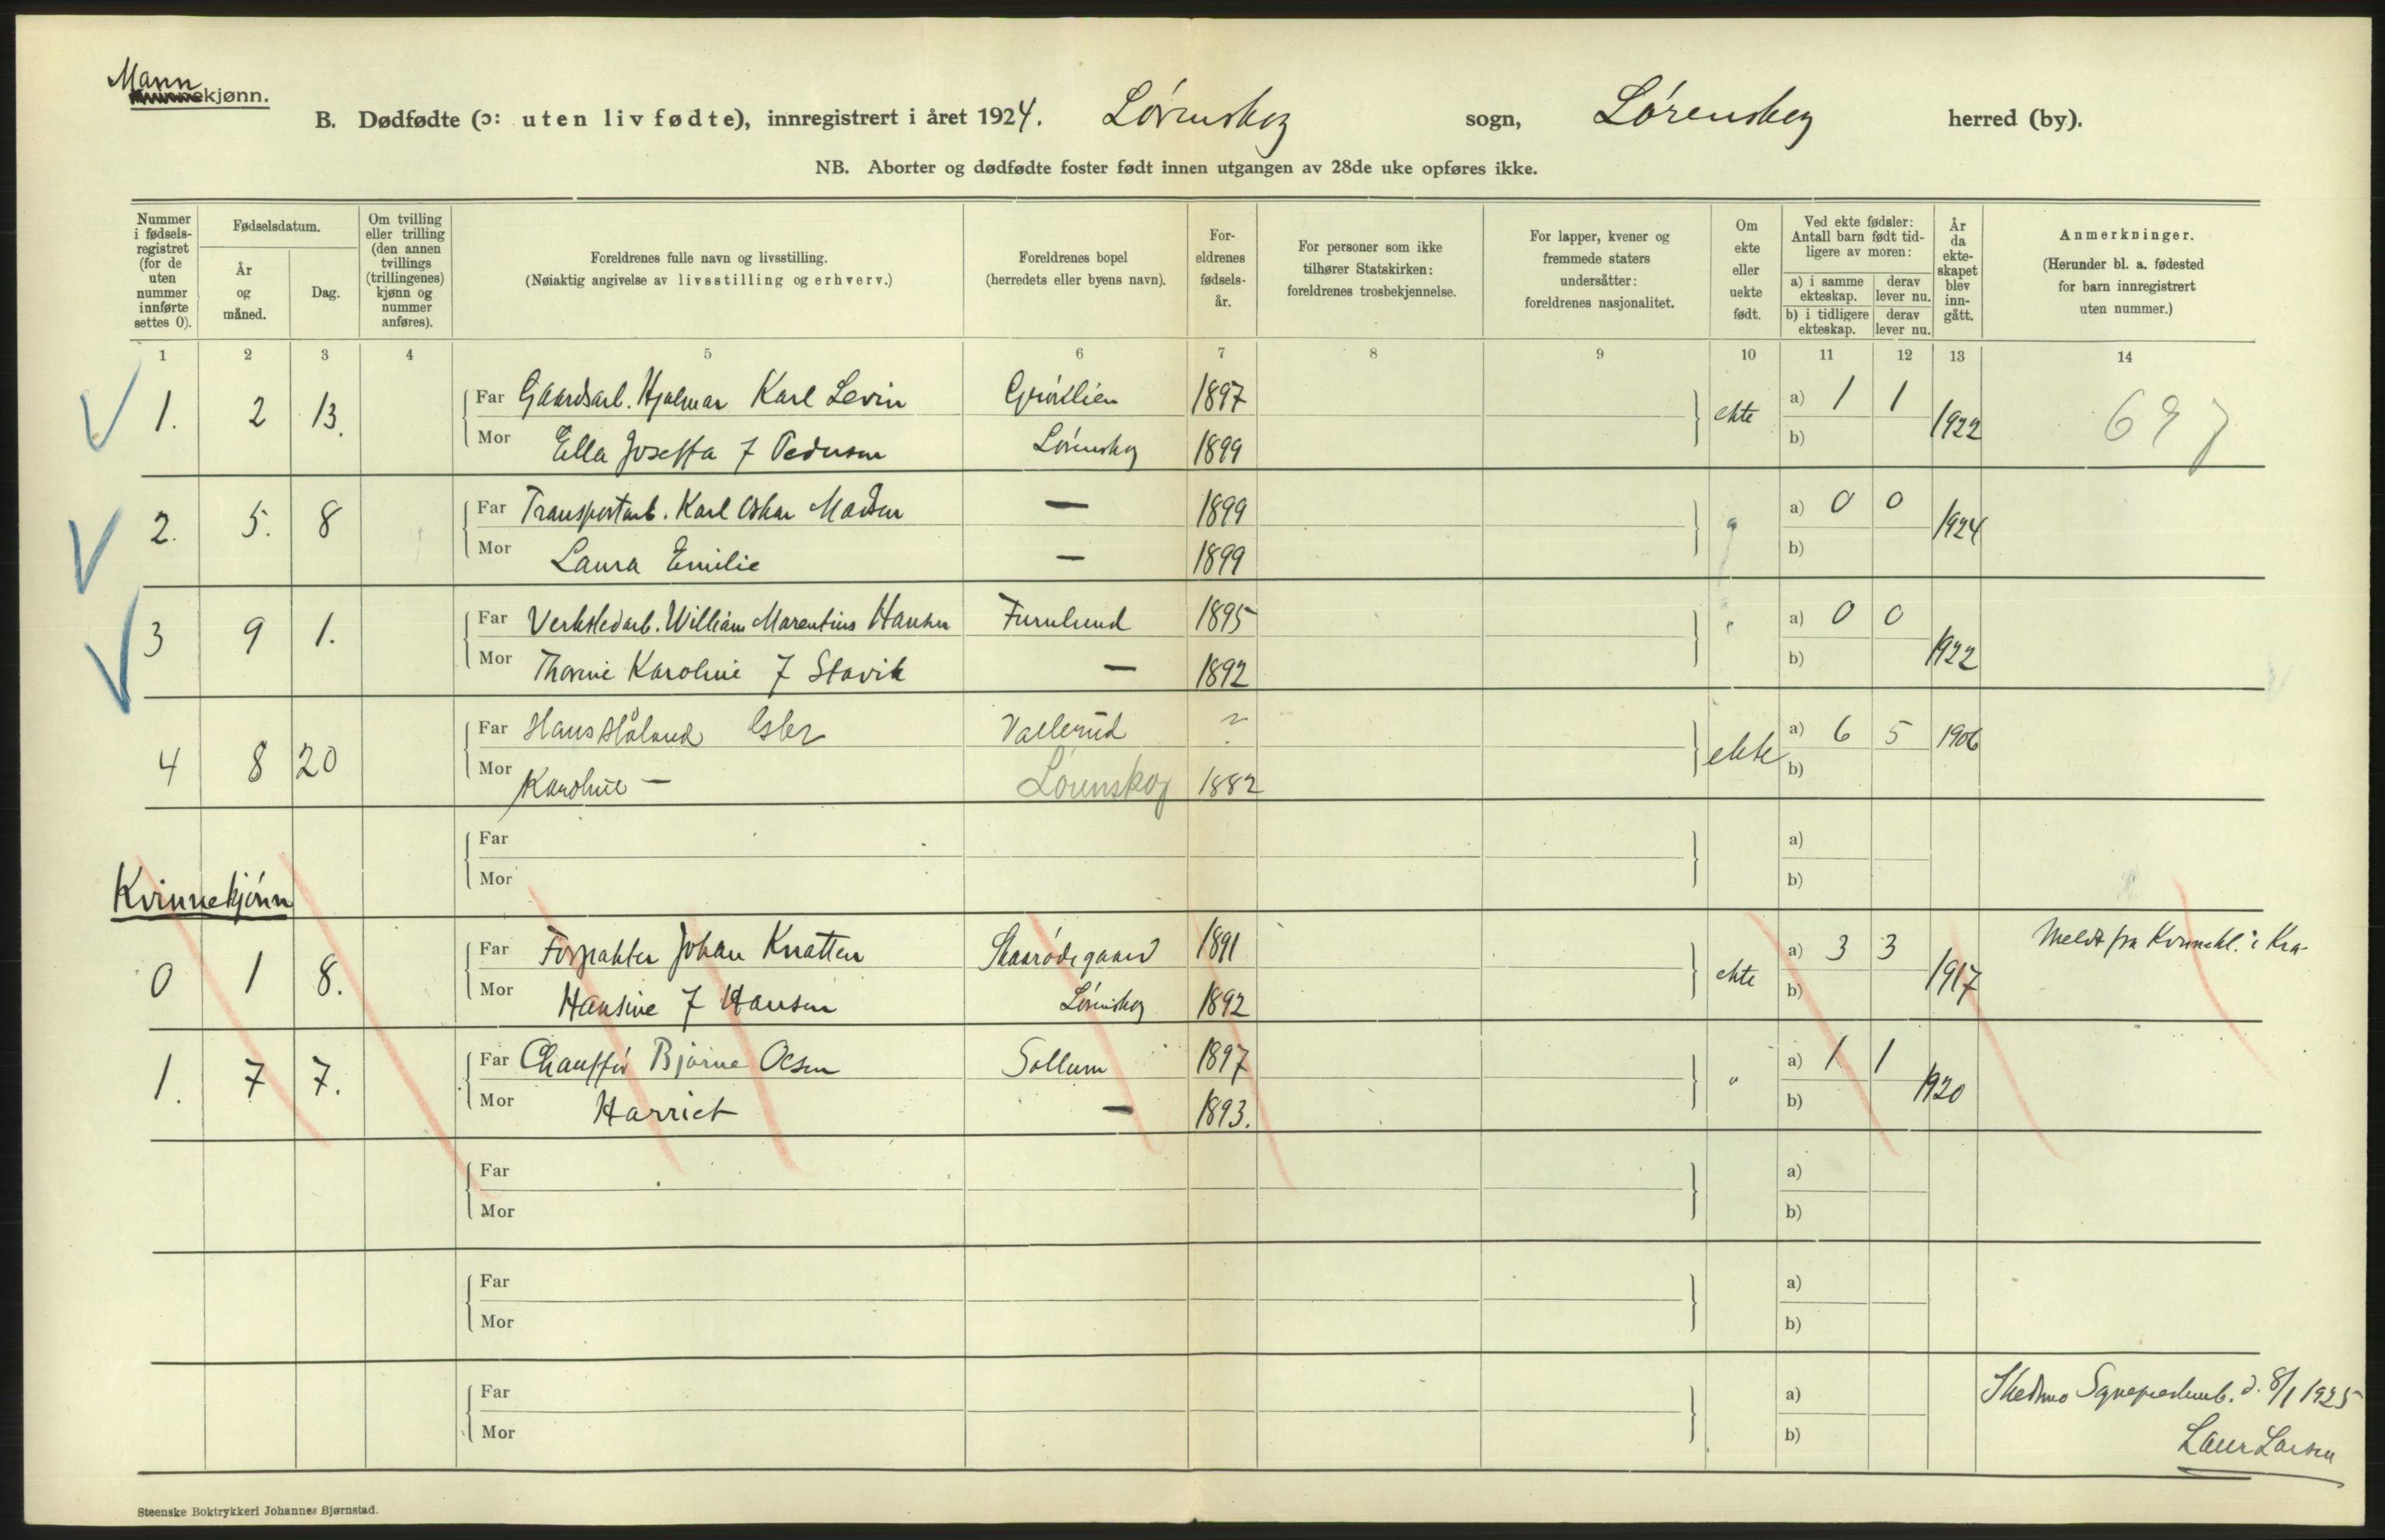 Mann
kjønn.
B. Dødfødte (ɔ: uten liv fødte), innregistrert i året 1924. Lørenskog sogn, Lørenskog herred (by).
NB. Aborter og dødfødte foster født innen utgangen av 28de uke opføres ikke.
Nummer i fødsels-registret (for de uten nummer innførte settes 0).
Fødselsdatum.
År og måned.
Dag.
Om tvilling eller trilling (den annen tvillings (trillingenes) kjønn og nummer anføres).
Foreldrenes fulle navn og livsstilling.
(Nøiaktig angivelse av livsstilling og erhverv.)
Foreldrenes bopel
(herredets eller byens navn).
For-eldrenes fødsels-år.
For personer som ikke tilhører Statskirken: foreldrenes trosbekjennelse.
For lapper, kvener og fremmede staters undersåtter: foreldrenes nasjonalitet.
Om ekte eller uekte født.
Ved ekte fødsler: Antall barn født tid-ligere av moren:
a) i samme ekteskap. derav lever nu.
b) i tidligere ekteskap. derav lever nu.
År da ekte-skapet blev inn-gått.
Anmerkninger.
(Herunder bl. a. fødested for barn innregistrert uten nummer.)
1 2 3 4 5 6 7 8 9 10 11 12 13 14
1. 2 13. Far Gaardsarb. Hjalmar Karl Levin 1897 ekte a) 1 1 1922
Mor Ella Joseffa f Pedersen Lørenskog 1899 b)
2. 5. 8 Far Transportarb. Karl Oskar Madsen — 1899 " a) 0 0 1924
Mor Laura Emilie — 1899 b)
3 9 1. Far Verkstedarb. William Marentius Hansen Furulund 1895 " a) 0 0 1922
Mor Karoline f Slavik — 1892 b)
4 8 20 Far Hans Håland Vallerud ? ekte a) 6 5 1906
Mor Karoline — Lørenskog 1882 b)
Far a)
Mor b)
Kvinnekjønn
0 1 8. Far Forpakter Johan Knatten 1891 ekte a) 3 3 1917 Meldt fra Kvinnekl. i Kra.
Mor Hansine f Hansen Lørenskog 1892 b)
1. 7 7. Far Chauffør Bjarne Olsen Sollum 1897 " a) 1 1 1920
Mor Harriet — 1893. b)
Far a)
Mor b)
Far a)
Mor b)
Far a) Skedsmo d. 8/1 1925
Mor b) Laur Larsen
Steenske Boktrykkeri Johannes Bjørnstad.